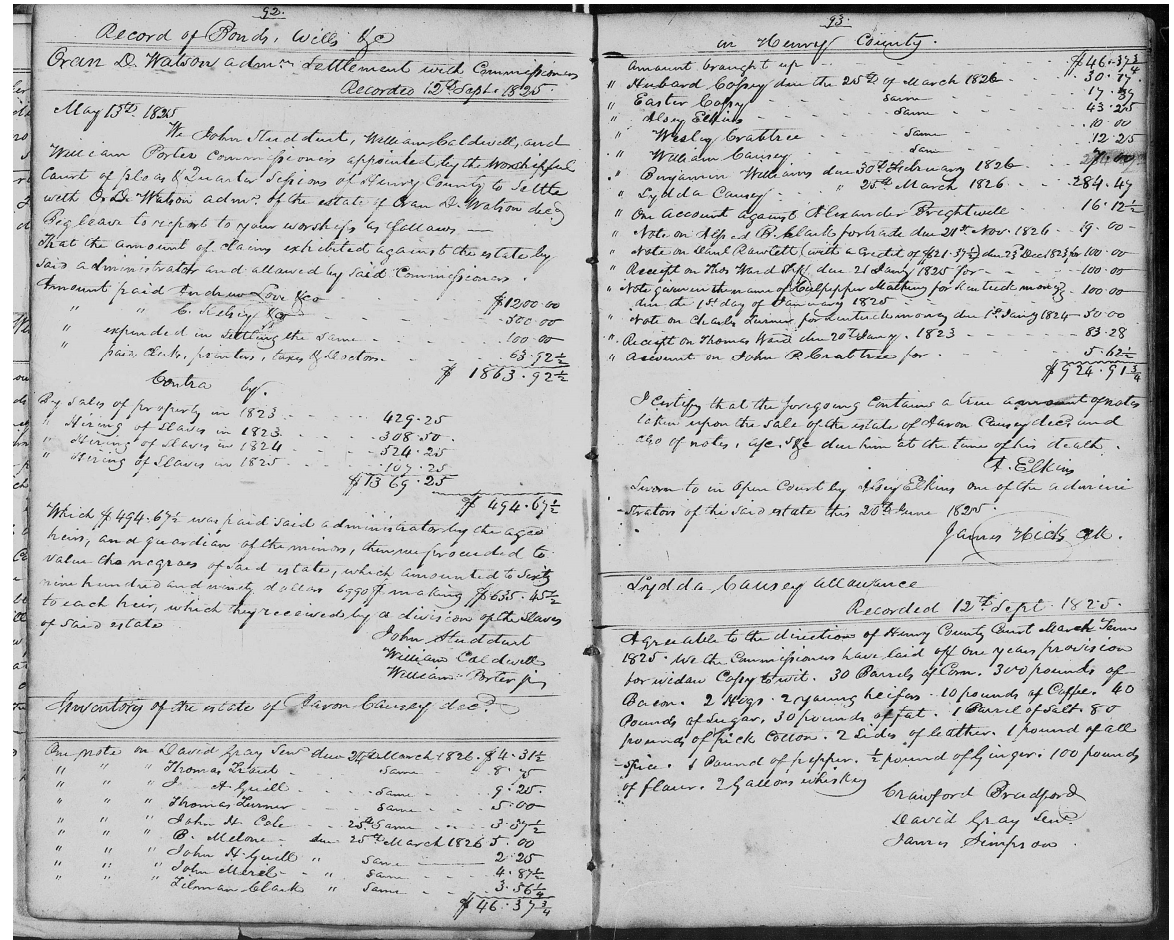 92.
Record of Bonds, Wills &c
Oran D. Watson admr. Settlement with Commissioners
Recorded 12th Sept. 1825.
May 15th. 1825
We John Studdut, William Caldwell, and
William Porter Commissioners appointed by the worshipful
Court of pleas & Quarter Sessions of Henry County to Settle
with O. D. Watson admr. of the estate of Oran D. Watson decd
Beg leave to report to your worships as follows
That the amount of Claims exhibited against the estate by
said administrator and allowed by said Commissioners.
Amount paid Andrew Love & co $1200.00
" " C. Kelsey & Co 500.00
" expended in settling the same 100.00
" paid clerk, printers, taxes & Doctors 63.92½
$ 1863.92½
Contra by.
By Sales of property in 1823 429.25
" Hiring of Slaves in 1823 308.50
" Hiring of Slaves in 1824 524.25
" Hiring of Slaves in 1825 107.25
$1369.25
$ 494.67½
Which $494.67½ was paid said administrator by the aged
heirs, and guardian of the minors, then we proceeded to
value the negroes of said estate, which amounted to Sixty
nine hundred and ninety dollars 6990$ making $635.45½
to each heir, which they received by a division of the Slaves
of said estate
John Studdut
William Caldwell
William Porter jr
Inventory of the estate of Aaron Causey decd
One note on David Gray Senr due 24th March 1826. $4.31½
" " " Thomas - same - 8.75
" " " J A Guill - same - 9.25
" " " Thomas Turner - same - 5.00
" " " John H. Cole - 25th same - 3.37½
" " " B. Melone due 25th March 1826 5.00
" " " John H Guill " same 2.25
" " " John " same 4.87½
" " " Tilman Clark " same 3.56¼
$46.37¾
93.
in Henry County.
Amount brought up $46.37¾
" Hubard Copsey due the 25th of March 1826 30.17
" Easter Copsey same 17.37
" Alsey Elkins same 43.25
" Wesley Crabtree same 10.00
" William Causey same 12.25
" Benjamin Williams due 30th February 1826
" Lydda Causey " 25th March 1826 284.47
" On account against Alexander Brightwell 16.12½
" Note on Alfred B. Clark for hats due 21st Nov. 1826 19.00
" Note on Danl Rawlett (with a credit of $21.37½) due 23d Dec 1823 for 100.00
" Receipt on Thos Ward Shff due 21 Jany 1825 for 100.00
" Note given in the name of Culpepper Mathiny for Kentucky money
due the 1st day of January 1825 100.00
" Note on Charles Turner for Kentucky money due 1st Jany 1824 50.00
" Receipt on Thomas Ward due 20th Jany. 1823 83.28
" Account on John R. Crabtree for 5.62½
$924.91¾
I certify that the foregoing contains a true amount of notes
taken upon the sale of the estate of Aaron Causey decd and
also of notes, a/c &c due him at the time of his death.
A. Elkins
Sworn to in Open Court by Alsey Elkins one of the admini
strators of the said estate this 20th June 1825.
James Hicks Clk.
Lydda Causey allowance
Recorded 12th Sept 1825.
Agreeable to the direction of Henry County Court March Term
1825. We the Commissioners have laid off one years provision
for widow Copsey to wit. 30 Barrels of Corn. 300 pounds of
Bacon. 2 Hogs. 2 young heifers. 10 pounds of Coffee 40
Pounds of Sugar. 30 pounds of fat. 1 Barrel of Salt. 80
pounds of pick Cotton. 2 Sides of leather. 1 pound of all
spice. 1 Pound of pepper. ½ pound of Ginger. 100 pounds
of flower. 2 Gallons whiskey
Crawford Bradford
David Gray Senr
James Simpson